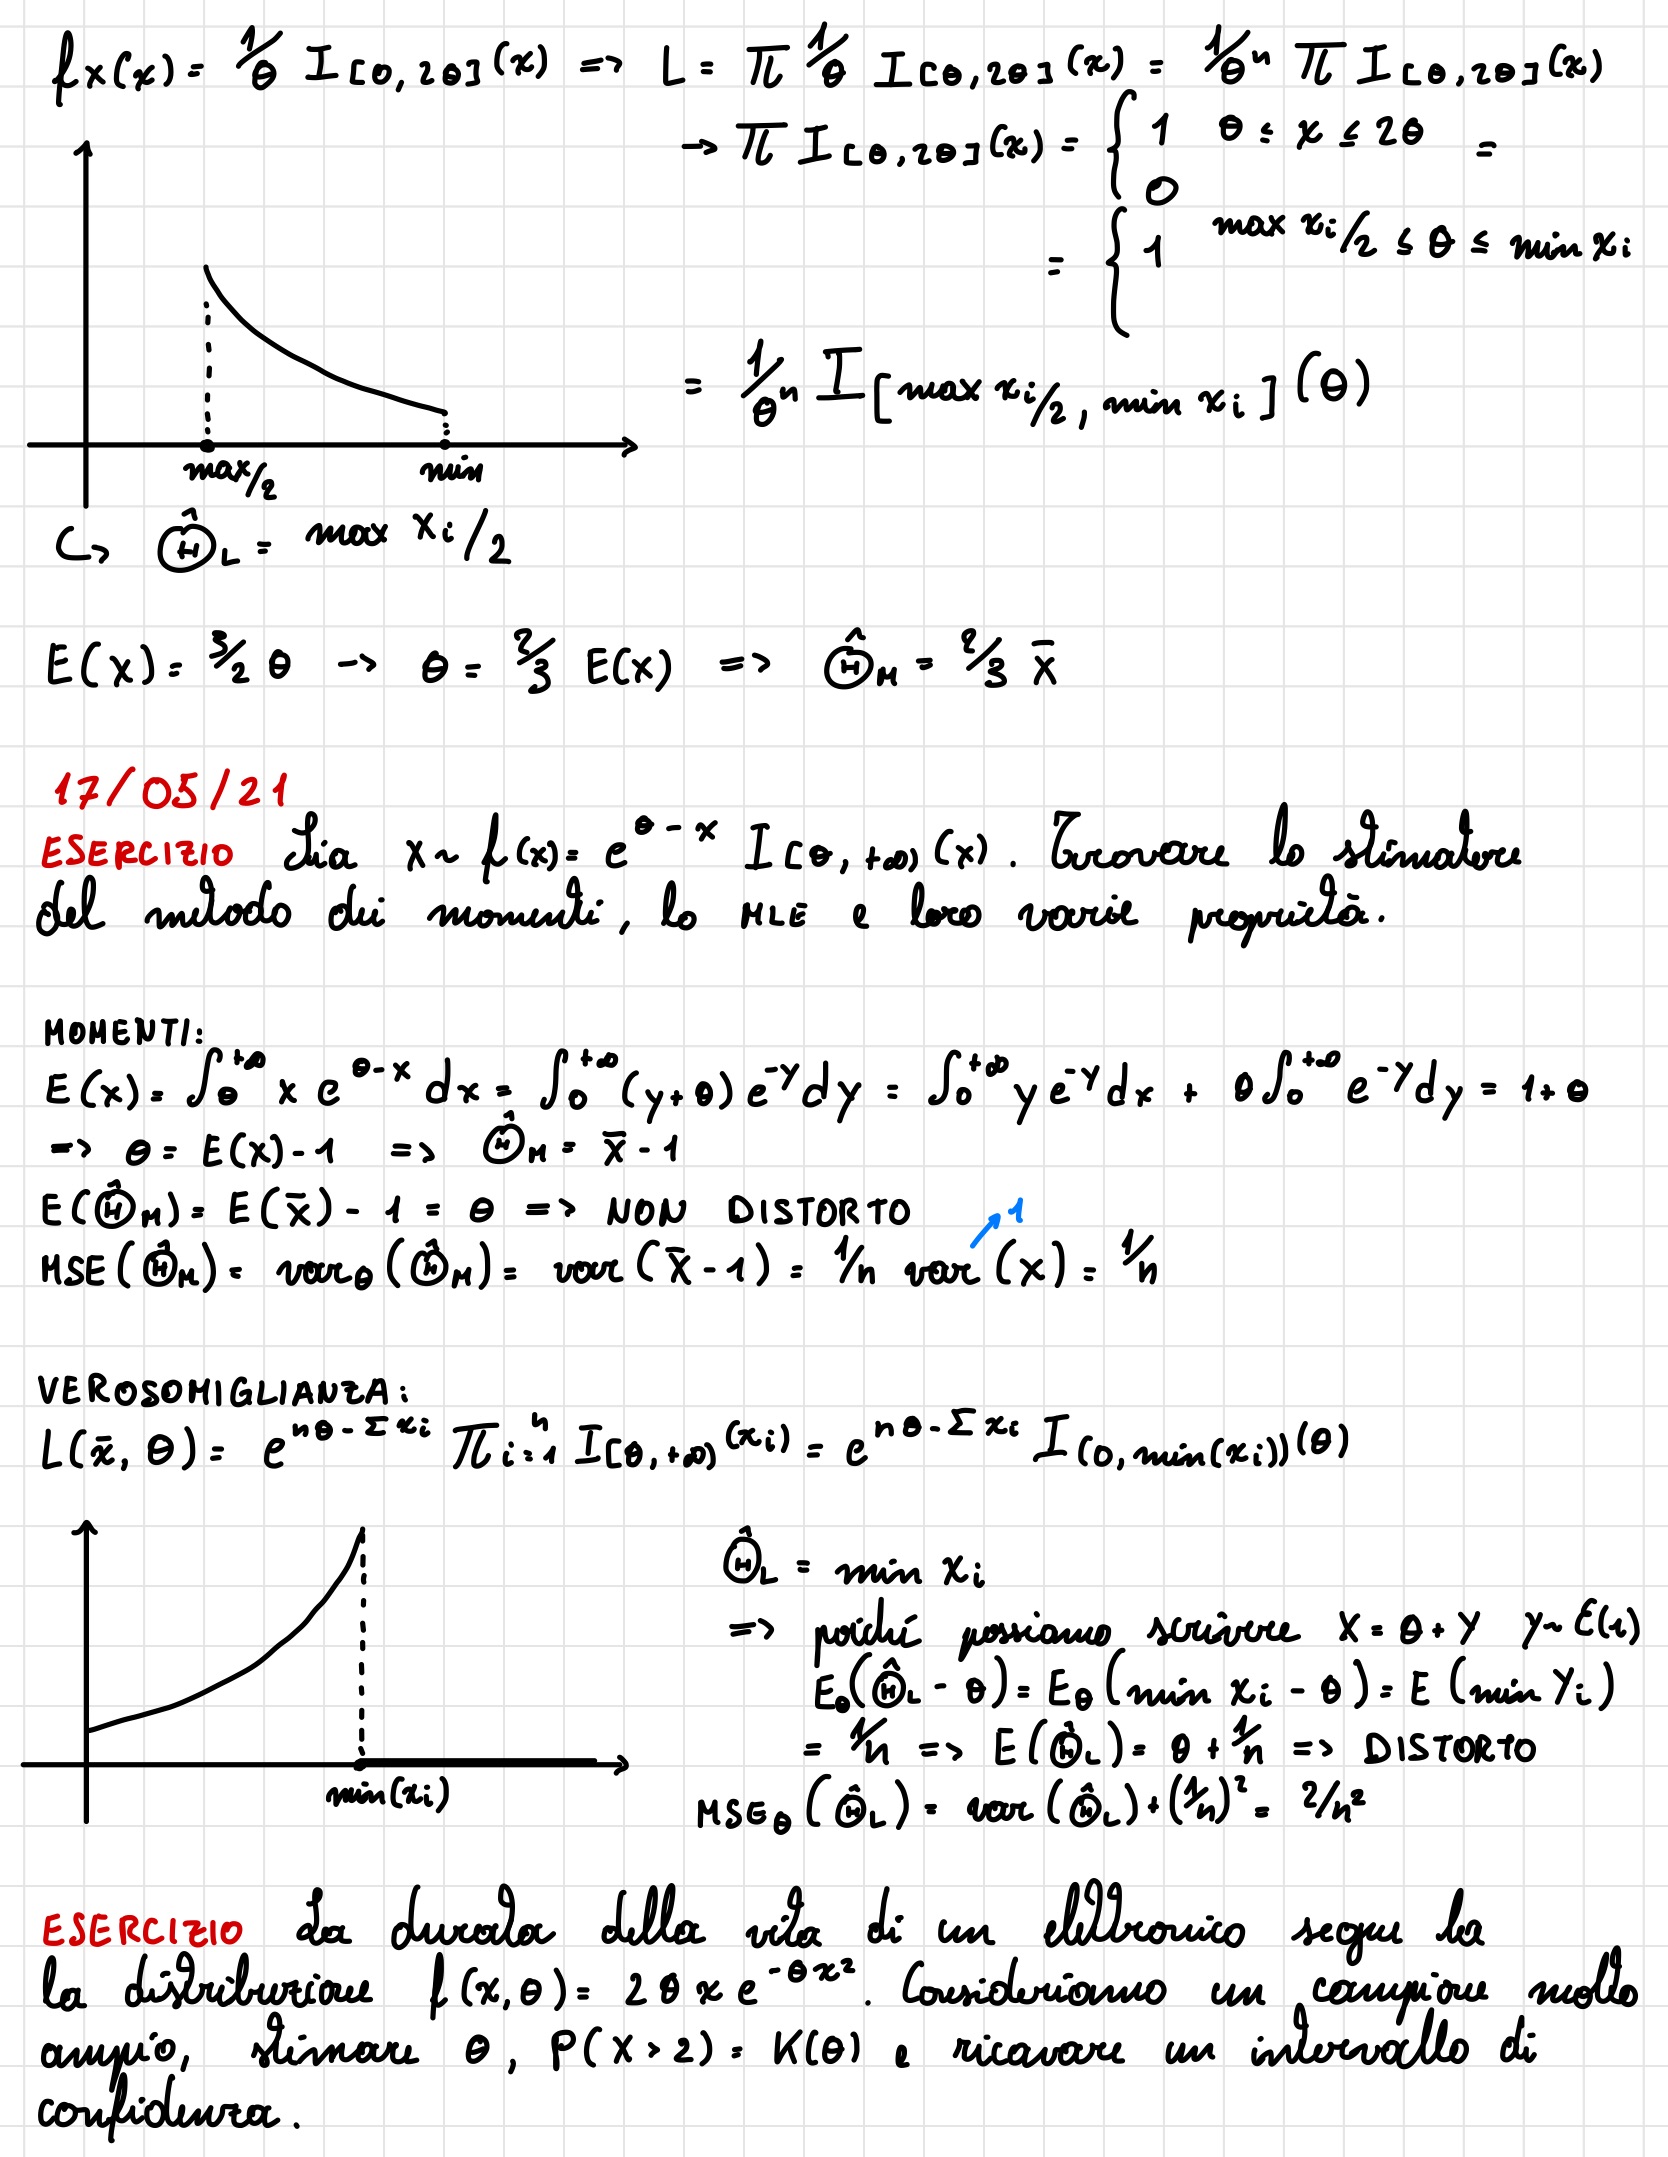 fx(x) = 1/θ I[0,2θ](x) => L = π 1/θ I[θ,2θ](x) = 1/θⁿ π I[θ,2θ](x)
→ π I[θ,2θ](x) = { 1 θ ≤ x ≤ 2θ =
0
= { 1 max xi/2 ≤ θ ≤ min xi
= 1/θⁿ I[max xi/2, min xi](θ)
max/2 min
↪ Θ̂L = max Xi/2
E(X) = 3/2 θ → θ = 2/3 E(X) => Θ̂M = 2/3 X̄
17/05/21
ESERCIZIO Sia X ~ f(x) = e^(θ-x) I[θ,+∞)(x). Trovare lo stimatore
del metodo dei momenti, lo MLE e loro varie proprietà.
MOMENTI:
E(X) = ∫θ^+∞ x e^(θ-x) dx = ∫0^+∞ (y+θ) e^-y dy = ∫0^+∞ y e^-y dx + θ∫0^+∞ e^-y dy = 1+θ
=> θ = E(X)-1 => Θ̂M = X̄-1
E(Θ̂M) = E(X̄) - 1 = θ => NON DISTORTO
1
MSE(Θ̂M) = varθ(Θ̂M) = var(X̄-1) = 1/n var(X) = 1/n
VEROSOMIGLIANZA:
L(x̄, θ) = e^(nθ-Σxi) πi=1^n I[θ,+∞)(xi) = e^(nθ-Σxi) I(0,min(xi))(θ)
Θ̂L = min Xi
=> poiché possiamo scrivere X = θ+Y y~E(1)
Eθ(Θ̂L - θ) = Eθ(min xi - θ) = E(min Yi)
= 1/n => E(Θ̂L) = θ + 1/n => DISTORTO
min(xi)
MSEθ(Θ̂L) = var(Θ̂L) + (1/n)² = 2/n²
ESERCIZIO La durata della vita di un elettronico segue la
la distribuzione f(x,θ) = 2θx e^(-θx²). Consideriamo un campione molto
ampio, stimare θ, P(X>2) = K(θ) e ricavare un intervallo di
confidenza.